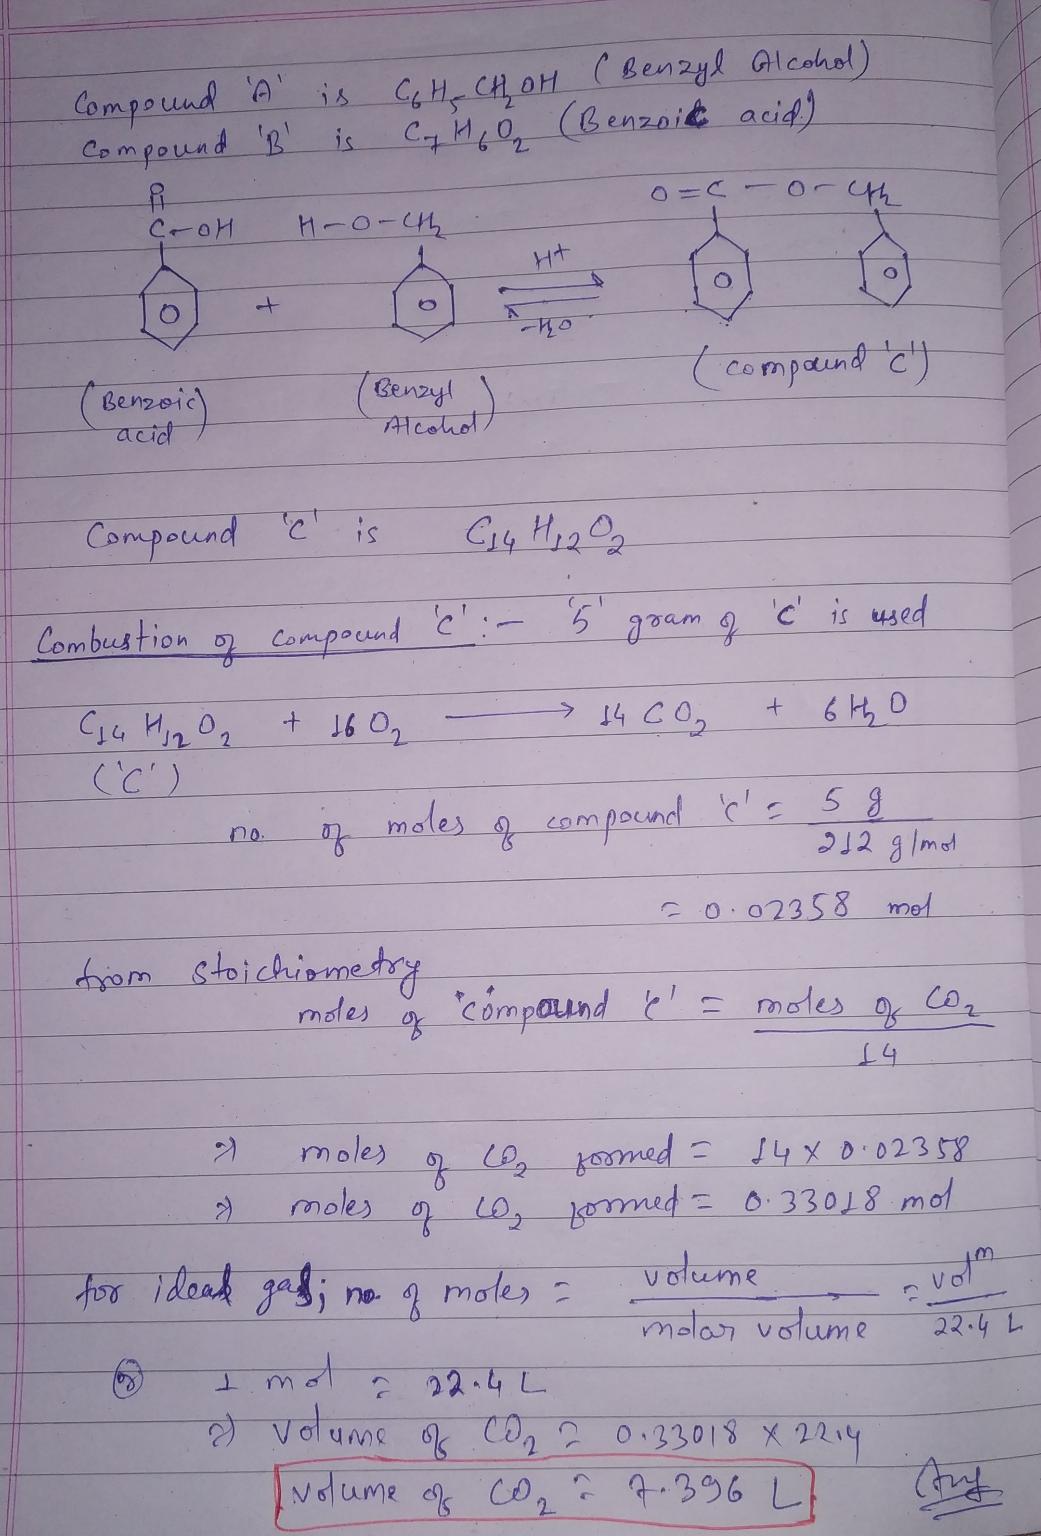 Compound 'A' is C6H5CH2OH (Benzyl Alcohol)
Compound 'B' is C7H6O2 (Benzoic acid)
O
C-OH H-O-CH2 O=C-O-CH2
+ H+
-H2O
(Benzoic acid) (Benzyl Alcohol) (compound 'C')
Compound 'C' is C14H12O2
Combustion of compound 'C' :- '5' gram of 'C' is used
C14H12O2 + 16O2 → 14CO2 + 6H2O
('C')
no. of moles of compound 'C' = 5 g / 212 g/mol
= 0.02358 mol
from stoichiometry
moles of compound 'C' = moles of CO2 / 14
⇒ moles of CO2 formed = 14 × 0.02358
⇒ moles of CO2 formed = 0.33018 mol
for ideal gas; no. of moles = volume / molar volume = volm / 22.4 L
or 1 mol = 22.4 L
⇒ volume of CO2 = 0.33018 × 22.4
volume of CO2 = 7.396 L Ans